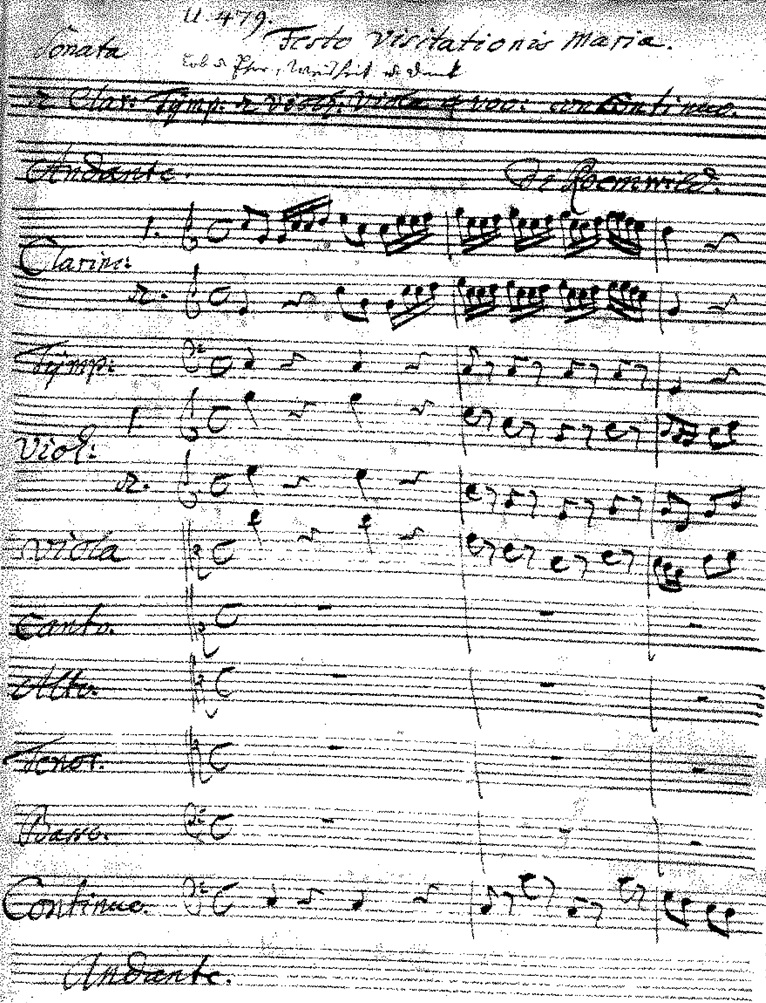 U. 479.
Sonata Festo Visitationis Maria.
Lob u Ehre, Weisheit u Dank
2 Clar: Tÿmp: 2 Violl: Viola 4 voc: con Continuo.
Andante. De Roemwild.
1.
Clarini:
2.
Tÿmp:
1.
Viol:
2.
Viola
Canto.
Alto.
Tenor.
Basso.
Continuo.
Andante.